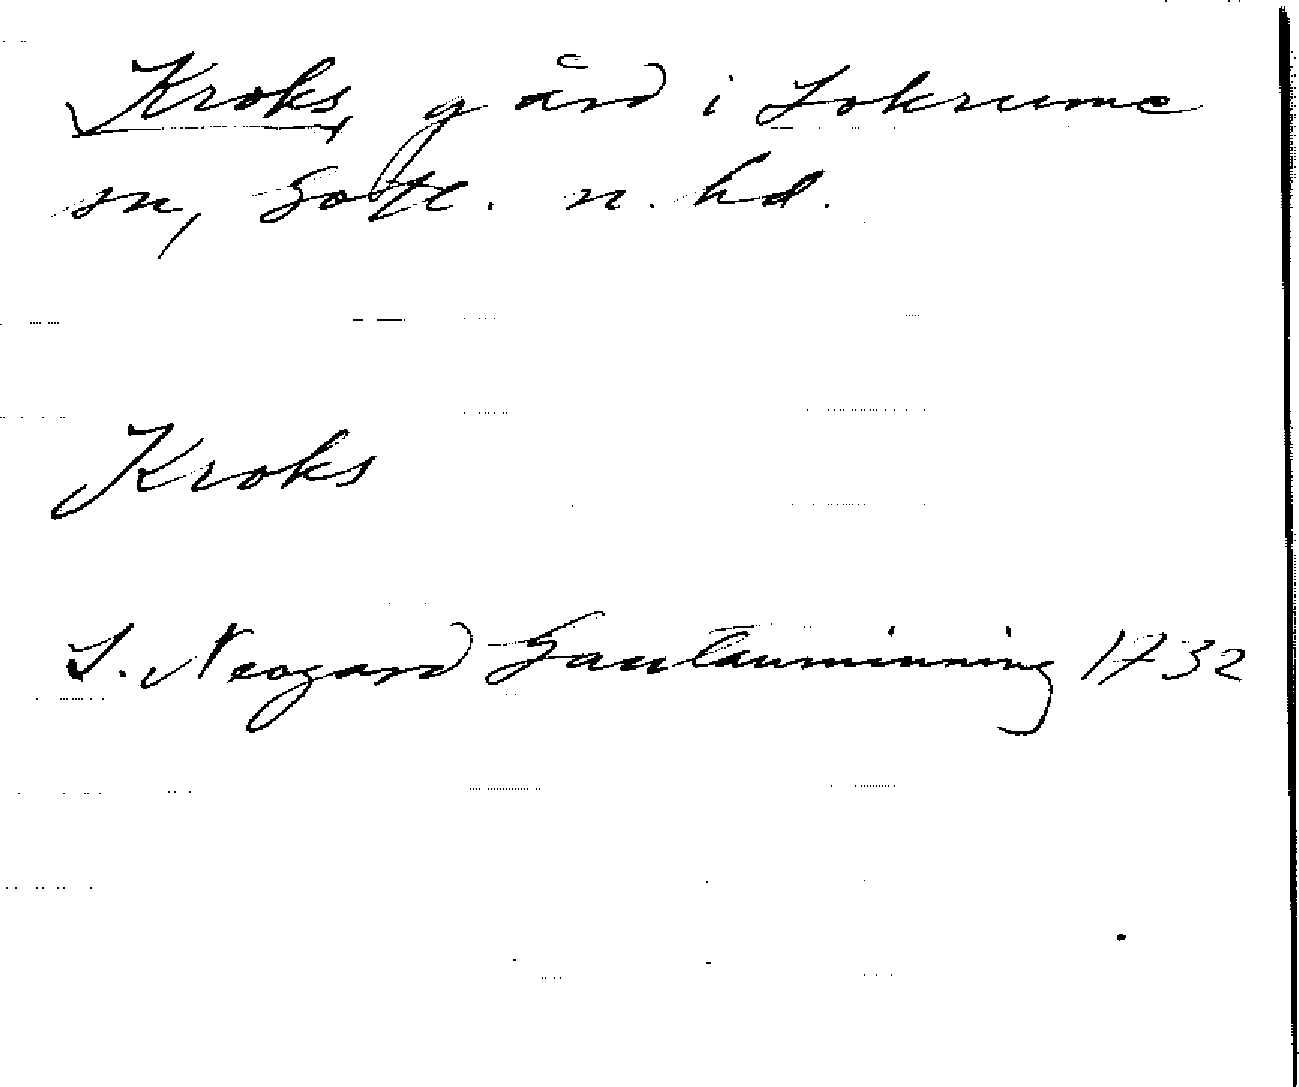 Kroks, gård i Lokrume
sn, Gotl. n. hd.
Kroks
L. Neogard Gautauminning 1732